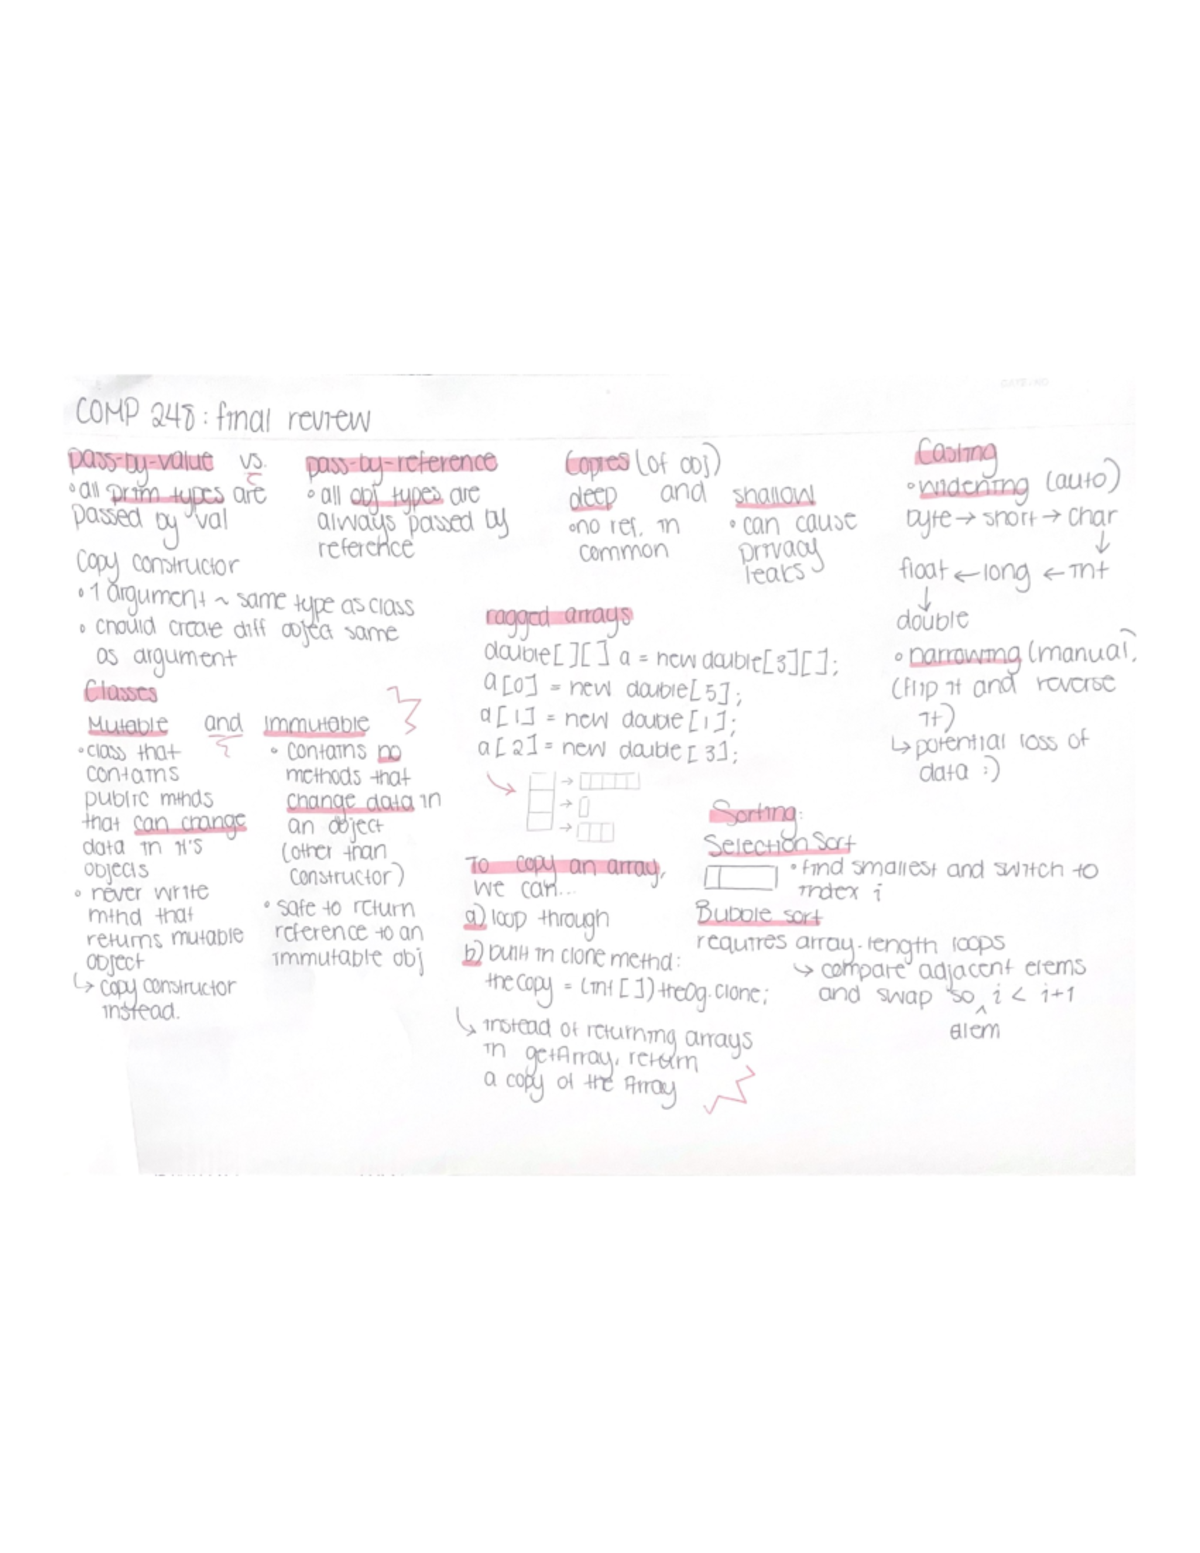 COMP 248: final review
pass-by-value vs.
• all prim types are
passed by val
pass-by-reference
• all obj types are
always passed by
reference
Copy constructor
• 1 argument ~ same type as class
• should create diff object same
as argument
Classes
Mutable and Immutable
• class that
contains
public mthds
that can change
data in it's
objects
• never write
mthd that
returns mutable
object
↳ copy constructor
instead.
• contains no
methods that
change data in
an object
(other than
constructor)
• safe to return
reference to an
immutable obj
Copies (of obj)
deep and shallow
• no ref. in
common
• can cause
privacy
leaks
ragged arrays
double[][] a = new double[3][];
a[0] = new double[5];
a[1] = new double[1];
a[2] = new double[3];
To copy an array,
we can...
a) loop through
b) built in clone methd:
theCopy = (int[])theOg.clone;
↳ instead of returning arrays
in getArray, return
a copy of the Array
Casting
• widening (auto)
byte → short → char
↓
float ← long ← int
↓
double
• narrowing (manual)
(flip it and reverse
it)
↳ potential loss of
data :)
Sorting:
Selection Sort
• find smallest and switch to
index i
Bubble sort
requires array.length loops
↳ compare adjacent elems
and swap so ^ i < i+1
elem